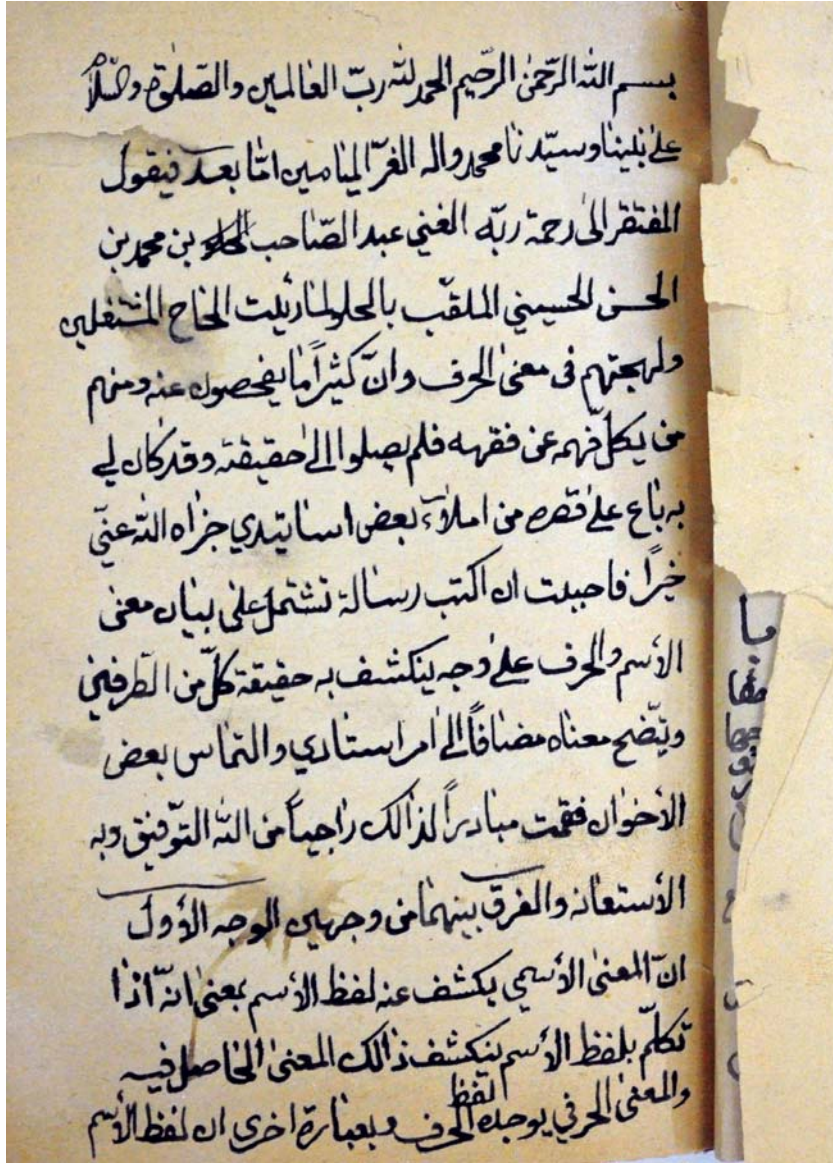 بسم الله الرّحمٰن الرّحيم الحمد لله ربّ العٰالمين والصّلوٰة والسّلاٰم
علىٰ نبيّنا وسيّدنا محمد واله الغرّ الميٰامين امّا بعد فيقول
المفتقر الىٰ رحمة ربّه الغني عبد الصّاحب بن محمد بن
الحسن الحسيني الملقّب بالحلو لمّا رئيت الحٰاح المشتغلين
ولهجتهم فى معنىٰ الحرف وانّ كثيراً مٰا يفحصون عنه ومنهم
من يكلّ فهمه عن فقهه فلم يصلوا الىٰ حقيقته وقد كان لي
به بٰاع علىٰ قصره من املاء بعض اساتيذي جزٰاه الله عنّي
خيراً فاحببت ان اكتب رسٰالة تشتمل علىٰ بيٰان معنىٰ
الأسم والحرف علىٰ وجه ينكشف به حقيقة كلّ من الطّرفين
ويتّضح معنٰاه مضٰافاً الىٰ امر استاذي والتمٰاس بعض
الأخوٰان فقمت مبٰادراً لذٰالك رٰاجياً من الله التّوفيق وبه
الأستعٰانه والفرق بينهمٰا من وجهين الوجه الأول
انّ المعنىٰ الأسمي يكشف عنه لفظ الأسم بمعنىٰ انّه اذٰا
تكلّم بلفظ الأسم ينكشف ذٰالك المعنىٰ الحٰاصل فيه
والمعنىٰ الحرفي يوجده لفظ الحرف وبعبٰارة اخرى ان لفظ الأسم